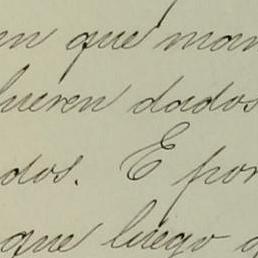 en que man
fueren dados
dos. E por
que luego q